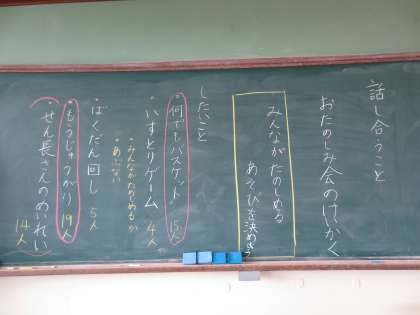 話し合うこと
おたのしみ会のけいかく
みんなが たのしめる
あそびを決めよう
したいこと
・何でもバスケット 15人
・いすとりゲーム 4人
・みんながたのしめるか
あぶない
・ばくだん回し 5人
・もうじゅうがり 19人
・せん長さんのめいれい 14人